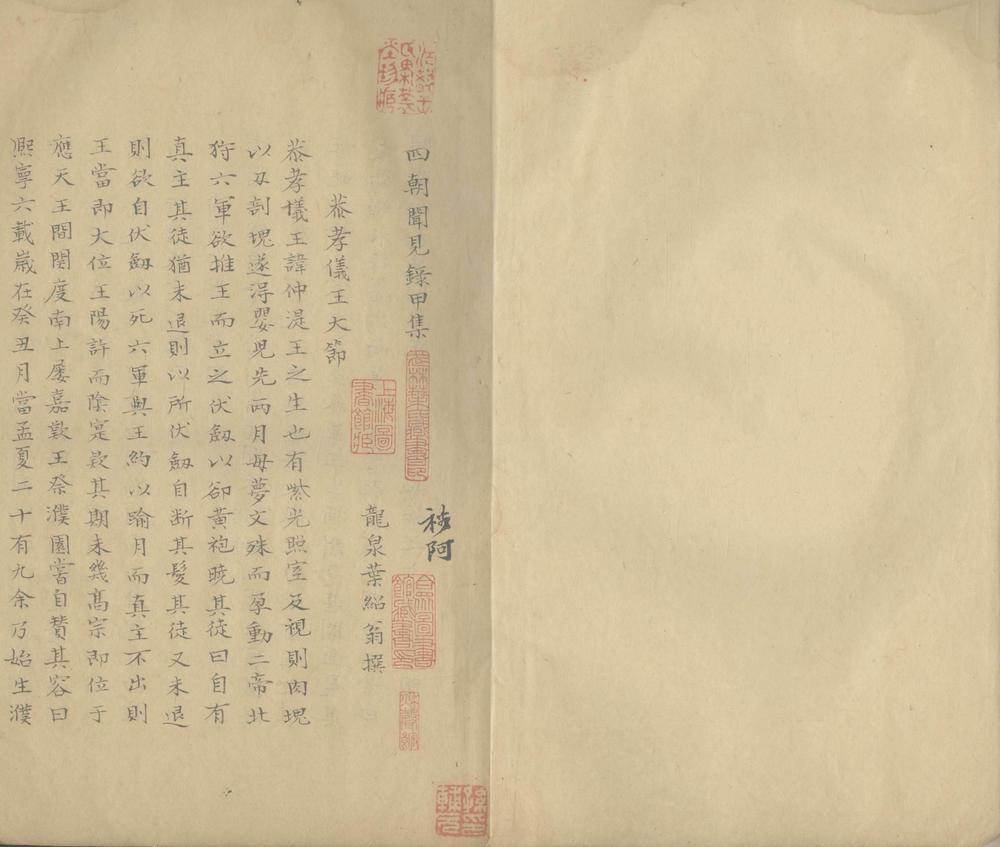 四朝聞見錄甲集
祕阿
龍泉葉紹翁撰
恭孝儀王大節
恭孝儀王諱仲湜王之生也有紫光照室及視則肉塊
以刃剖塊遂得嬰児先兩月母夢文殊而孕動二帝北
狩六軍欲推王而立之伏劔以卻黄袍曉其徒曰自有
真主其徒猶未退則以所伏劔自断其髮其徒又未退
則欲自伏劔以死六軍與王約以踰月而真主不出則
王當即大位王陽許而陰寔欵其期未幾髙宗即位于
應天王間関度南上屡嘉歎王祭濮園嘗自賛其容曰
熈寧六載嵗在癸丑月當孟夏二十有九余乃始生濮
上海圖書館藏